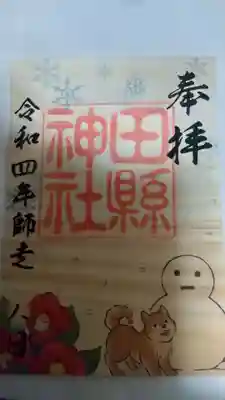 奉拝
田縣
神社
令和四年師走八日